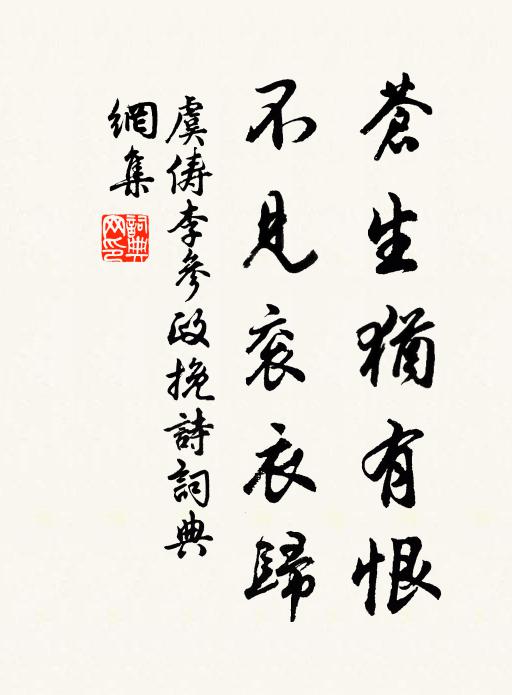 蒼生猶有恨
不見衮衣歸
虞儔李參政挽詩詞典
網集
詞典
网印